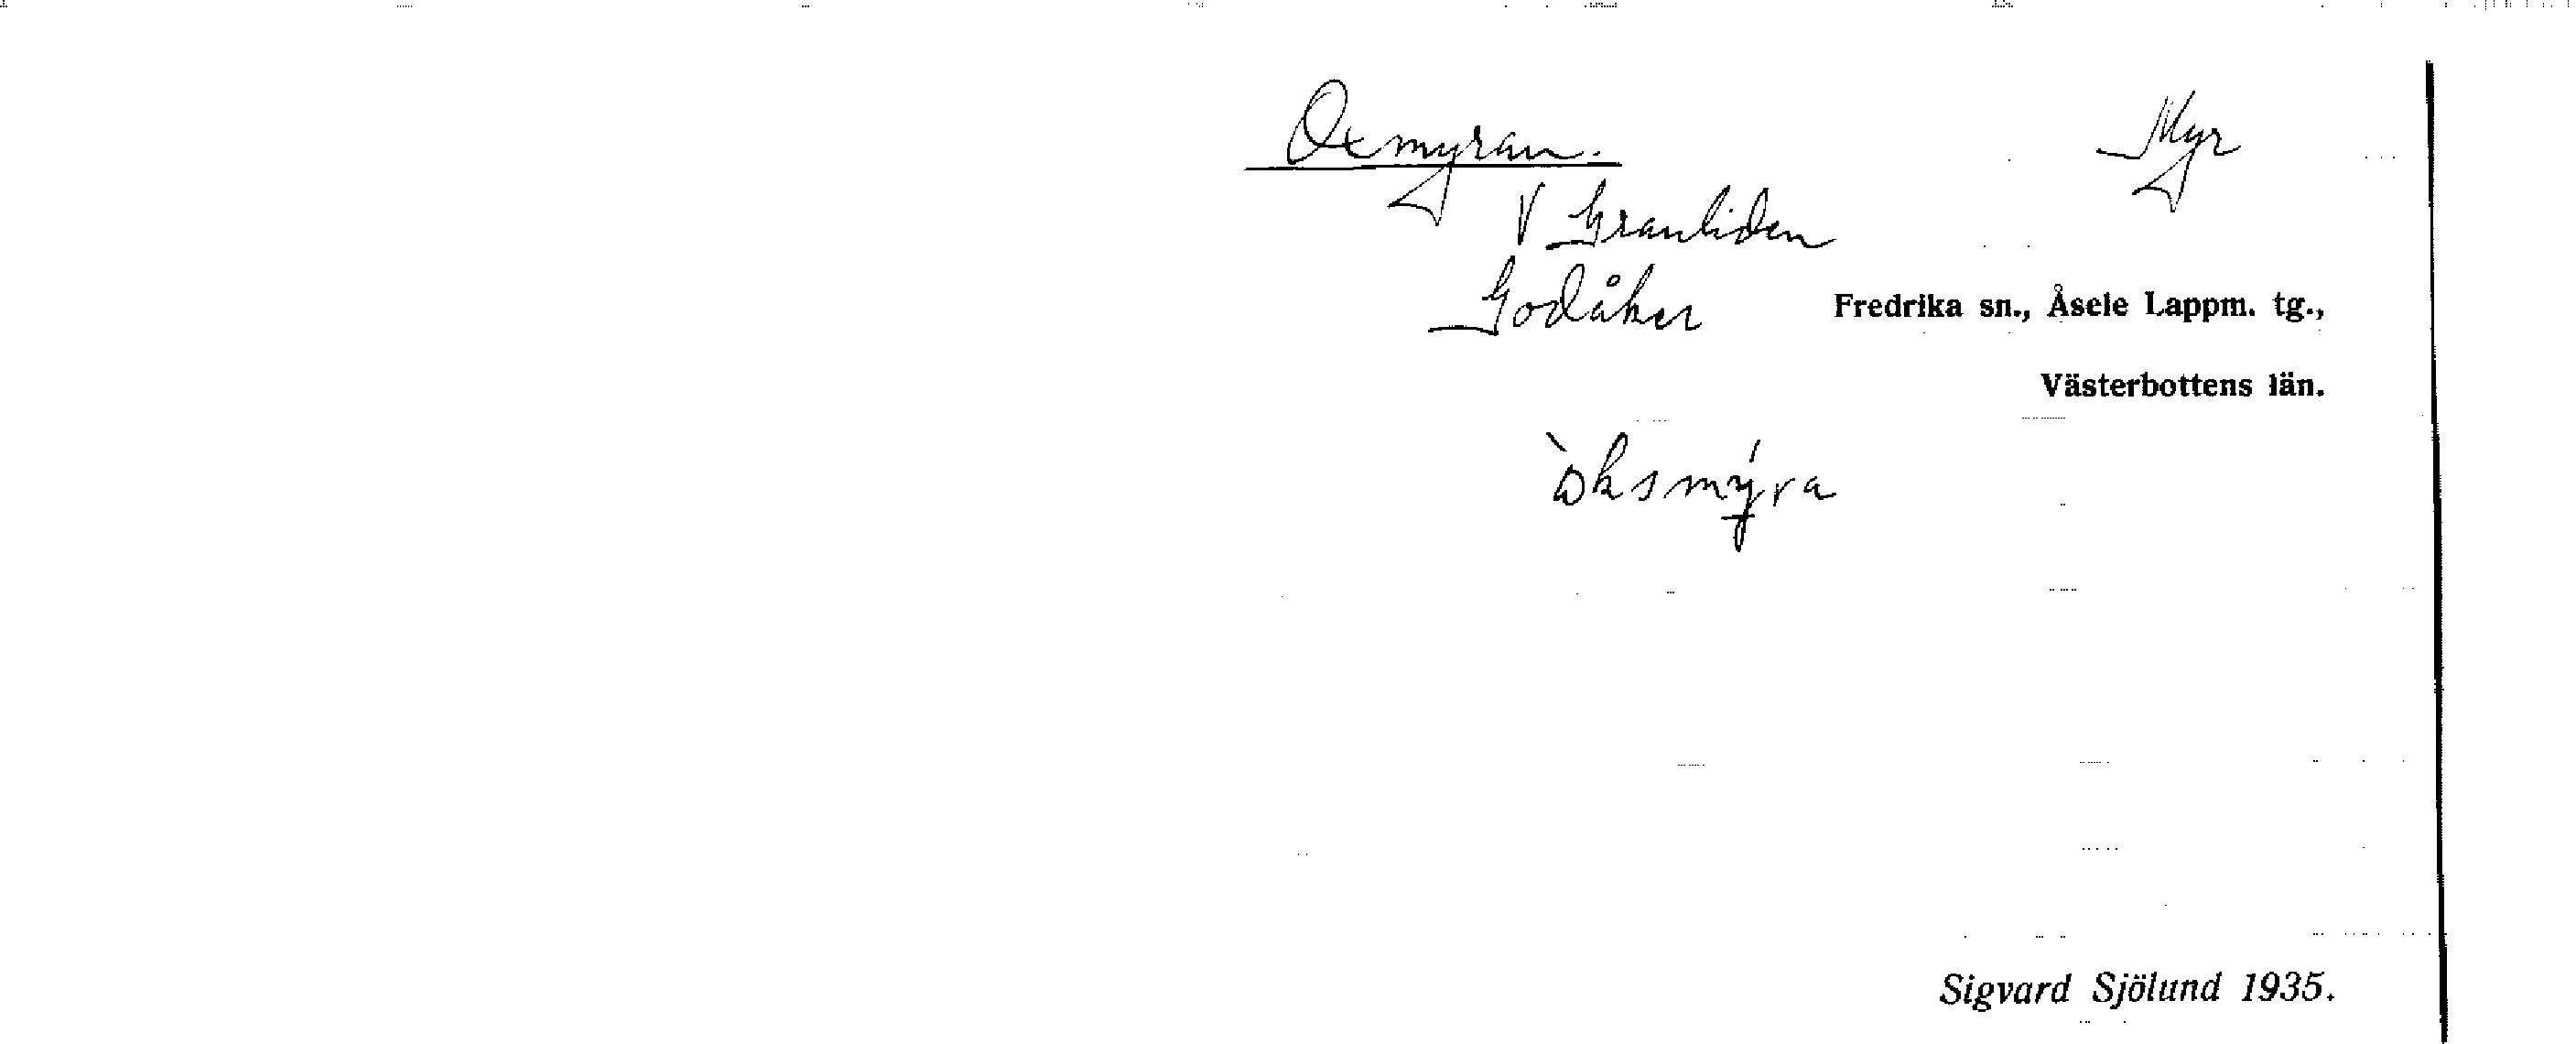 Oxmyran. Myr
V Granliden
Godåker Fredrika sn., Åsele Lappm. tg.,
Västerbottens län.
òksmýra
Sigvard Sjölund 1935.